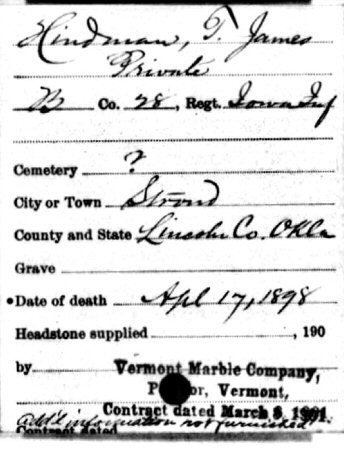 Hindman, T. James
Private
B Co. 28, Regt. Iowa Inf
Cemetery ?
City or Town Stroud
County and State Lincoln Co. Okla
Grave
Date of death Apl 17, 1898
Headstone supplied , 190
by Vermont Marble Company,
Vermont,
Contract dated March
Add'l information not furnished
Contract dated